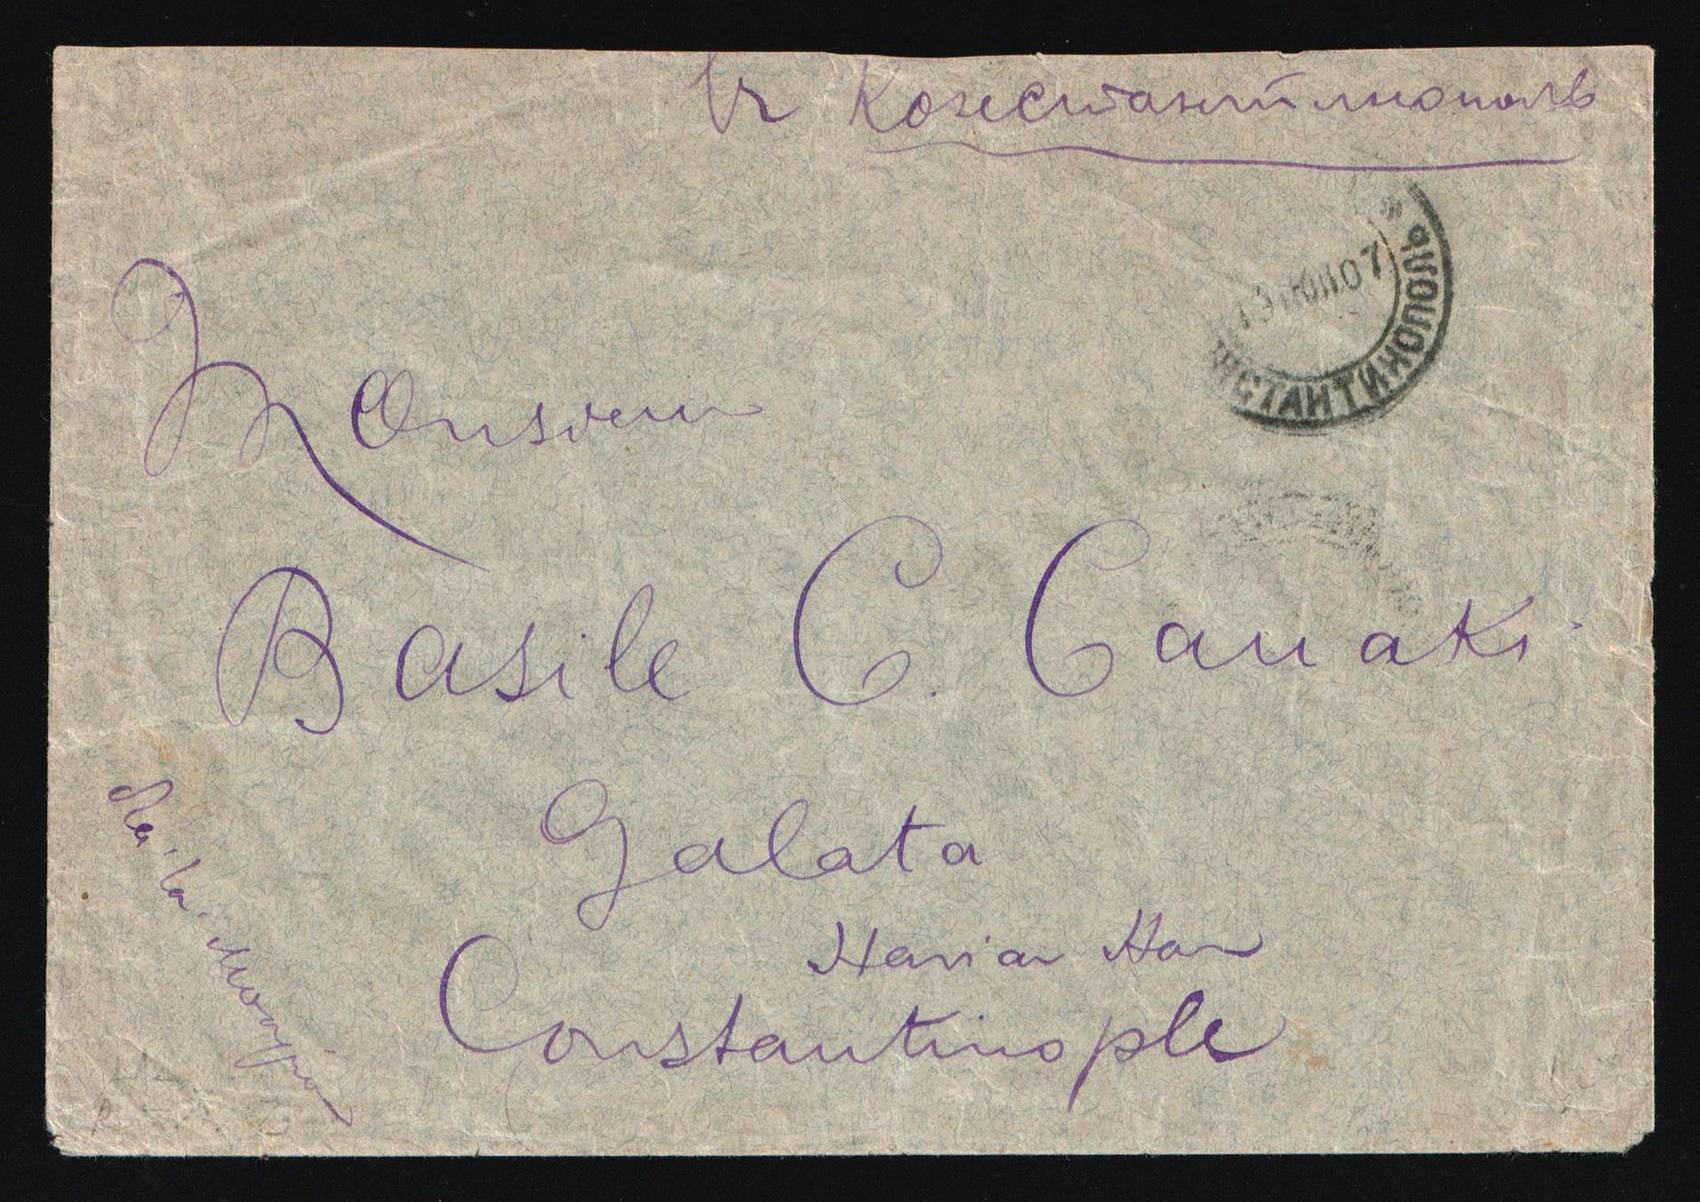 Константинополь
НСТАНТИНОПОЛЬ
Monsieur
Basile C. Canaki
Galata
Han
Constantinople